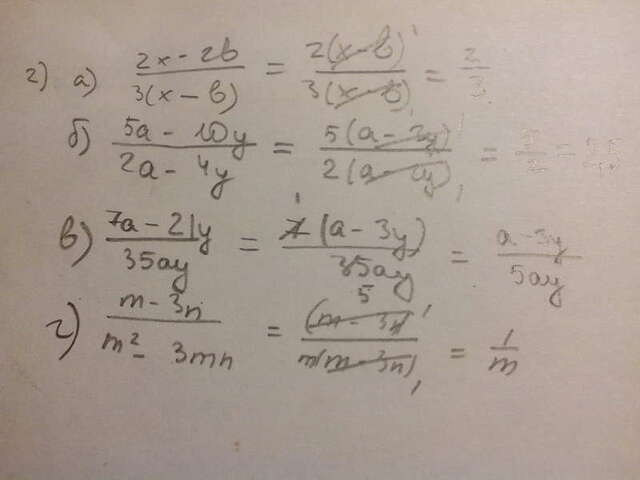 2) а) (2x - 2b)/(3(x - b)) = 2(x - b)¹/3(x - b)₁ = 2/3
б) (5a - 10y)/(2a - 4y) = 5(a - 2y)¹/2(a - 2y)₁ = 5/2 =
в) (7a - 21y)/(35ay) = ¹7(a - 3y)/35ay 5 = (a - 3y)/(5ay)
г) (m - 3n)/(m² - 3mn) = (m - 3n)¹/m(m - 3n)₁ = 1/m